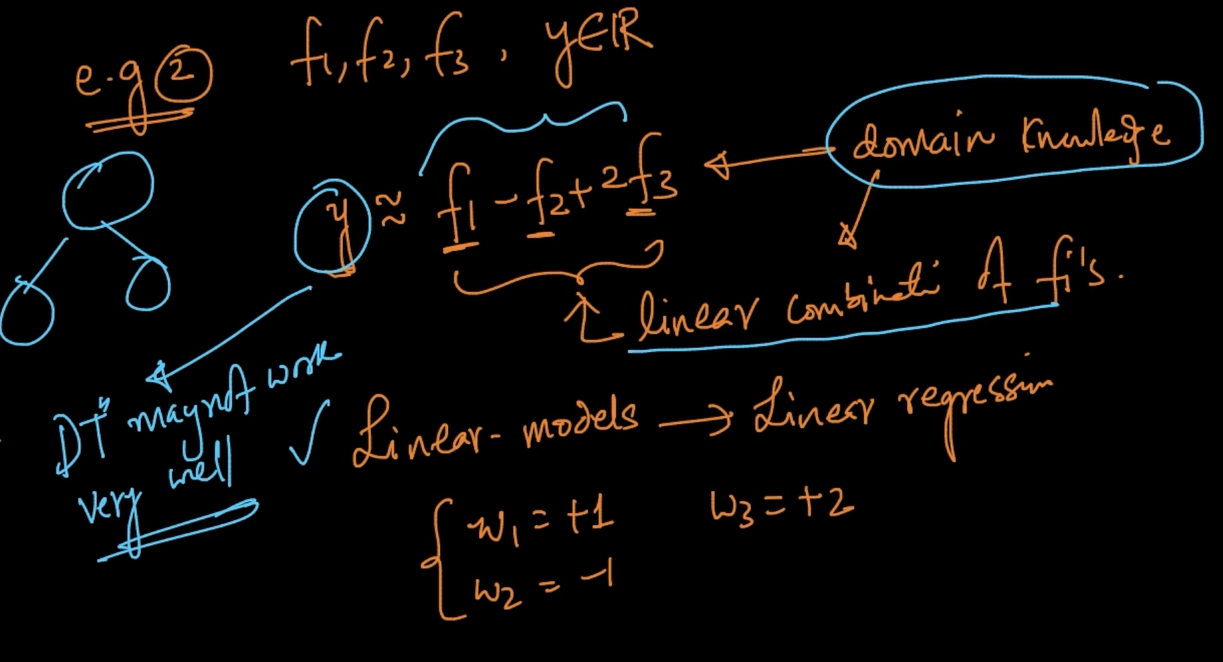 e.g ② f1, f2, f3, y∈ℝ
domain knowledge
y ≈ f1 - f2 + 2f3
linear combinati of fi's.
DT" may not work very well
✓ Linear-models → Linear regression
w1 = +1 w3 = +2
w2 = -1